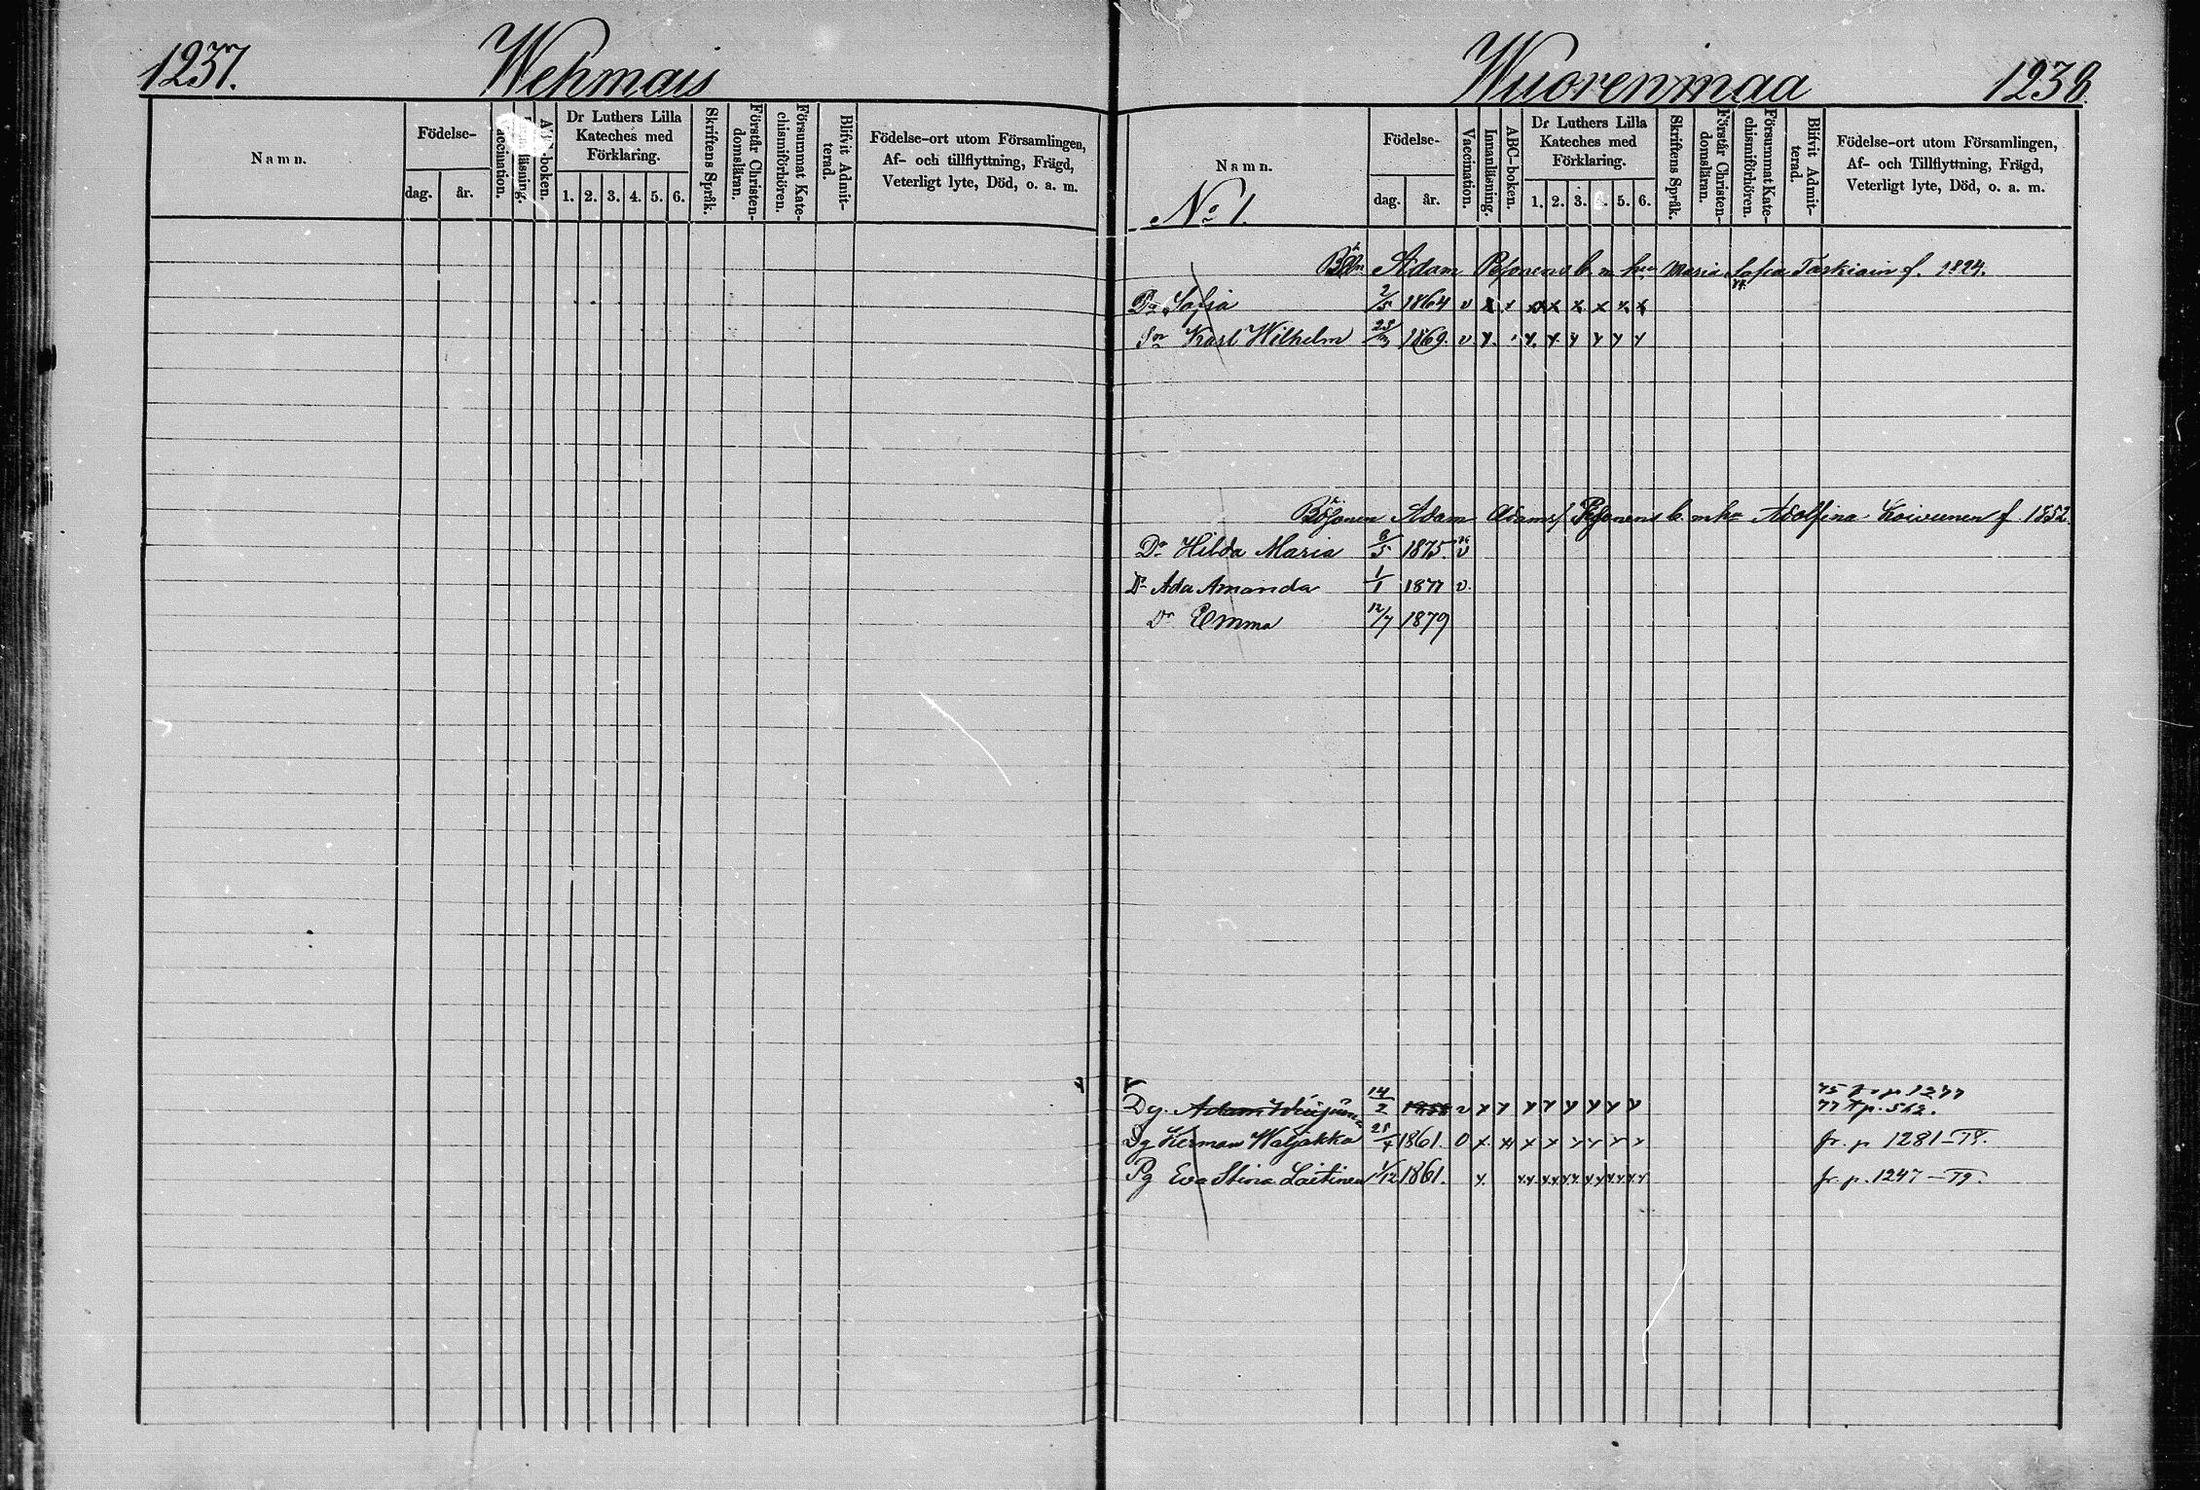 1237. Wehmais
Namn.
Födelse-
dag. år.
Vaccination.
Innanläsning.
ABC-boken.
Dr Luthers Lilla Kateches med Förklaring.
1. 2. 3. 4. 5. 6.
Skriftens Språk.
Förstår Christen-domsläran.
Försummat Kate-chismiförhören.
Blifvit Admit-terad.
Födelse-ort utom Församlingen,
Af- och tillflyttning, Frägd,
Veterligt lyte, Död, o. a. m.
Wuorenmaa 1238
Namn.
No 1.
Födelse-
dag. år.
Vaccination.
Innanläsning.
ABC-boken.
Dr Luthers Lilla Kateches med Förklaring.
1. 2. 3. 5. 6.
Skriftens Språk.
Förstår Christen-domsläran.
Försummat Kate-chismiförhören.
Blifvit Admit-terad.
Födelse-ort utom Församlingen,
Af- och Tillflyttning, Frägd,
Veterligt lyte, Död, o. a. m.
Adam b. m. hu Maria Sofia f. 1824.
Dr Sofia 2/5 1864 v x x x x x x x x
Sn Karl Wilhelm 1869. v x x x x x x x
Adam Adams b. m hu Adolfina Koivunen f 1852
Dr Hilda Maria 6/5 1875. v
Dr Ada Amanda 1/1 1877 v.
Dr Emma 12/7 1879
75 fr p 1277
Dg. Adam 14/2 v x x x x x x x x 77 t p. 562.
Dg Herman Waljakka 28/4 1861. v x x x x x x x x fr. p 1281-78.
Pg Eva Stina Laitinen 1/12 1861. x x x x x x x x x x x x x fr. p. 1247-79.